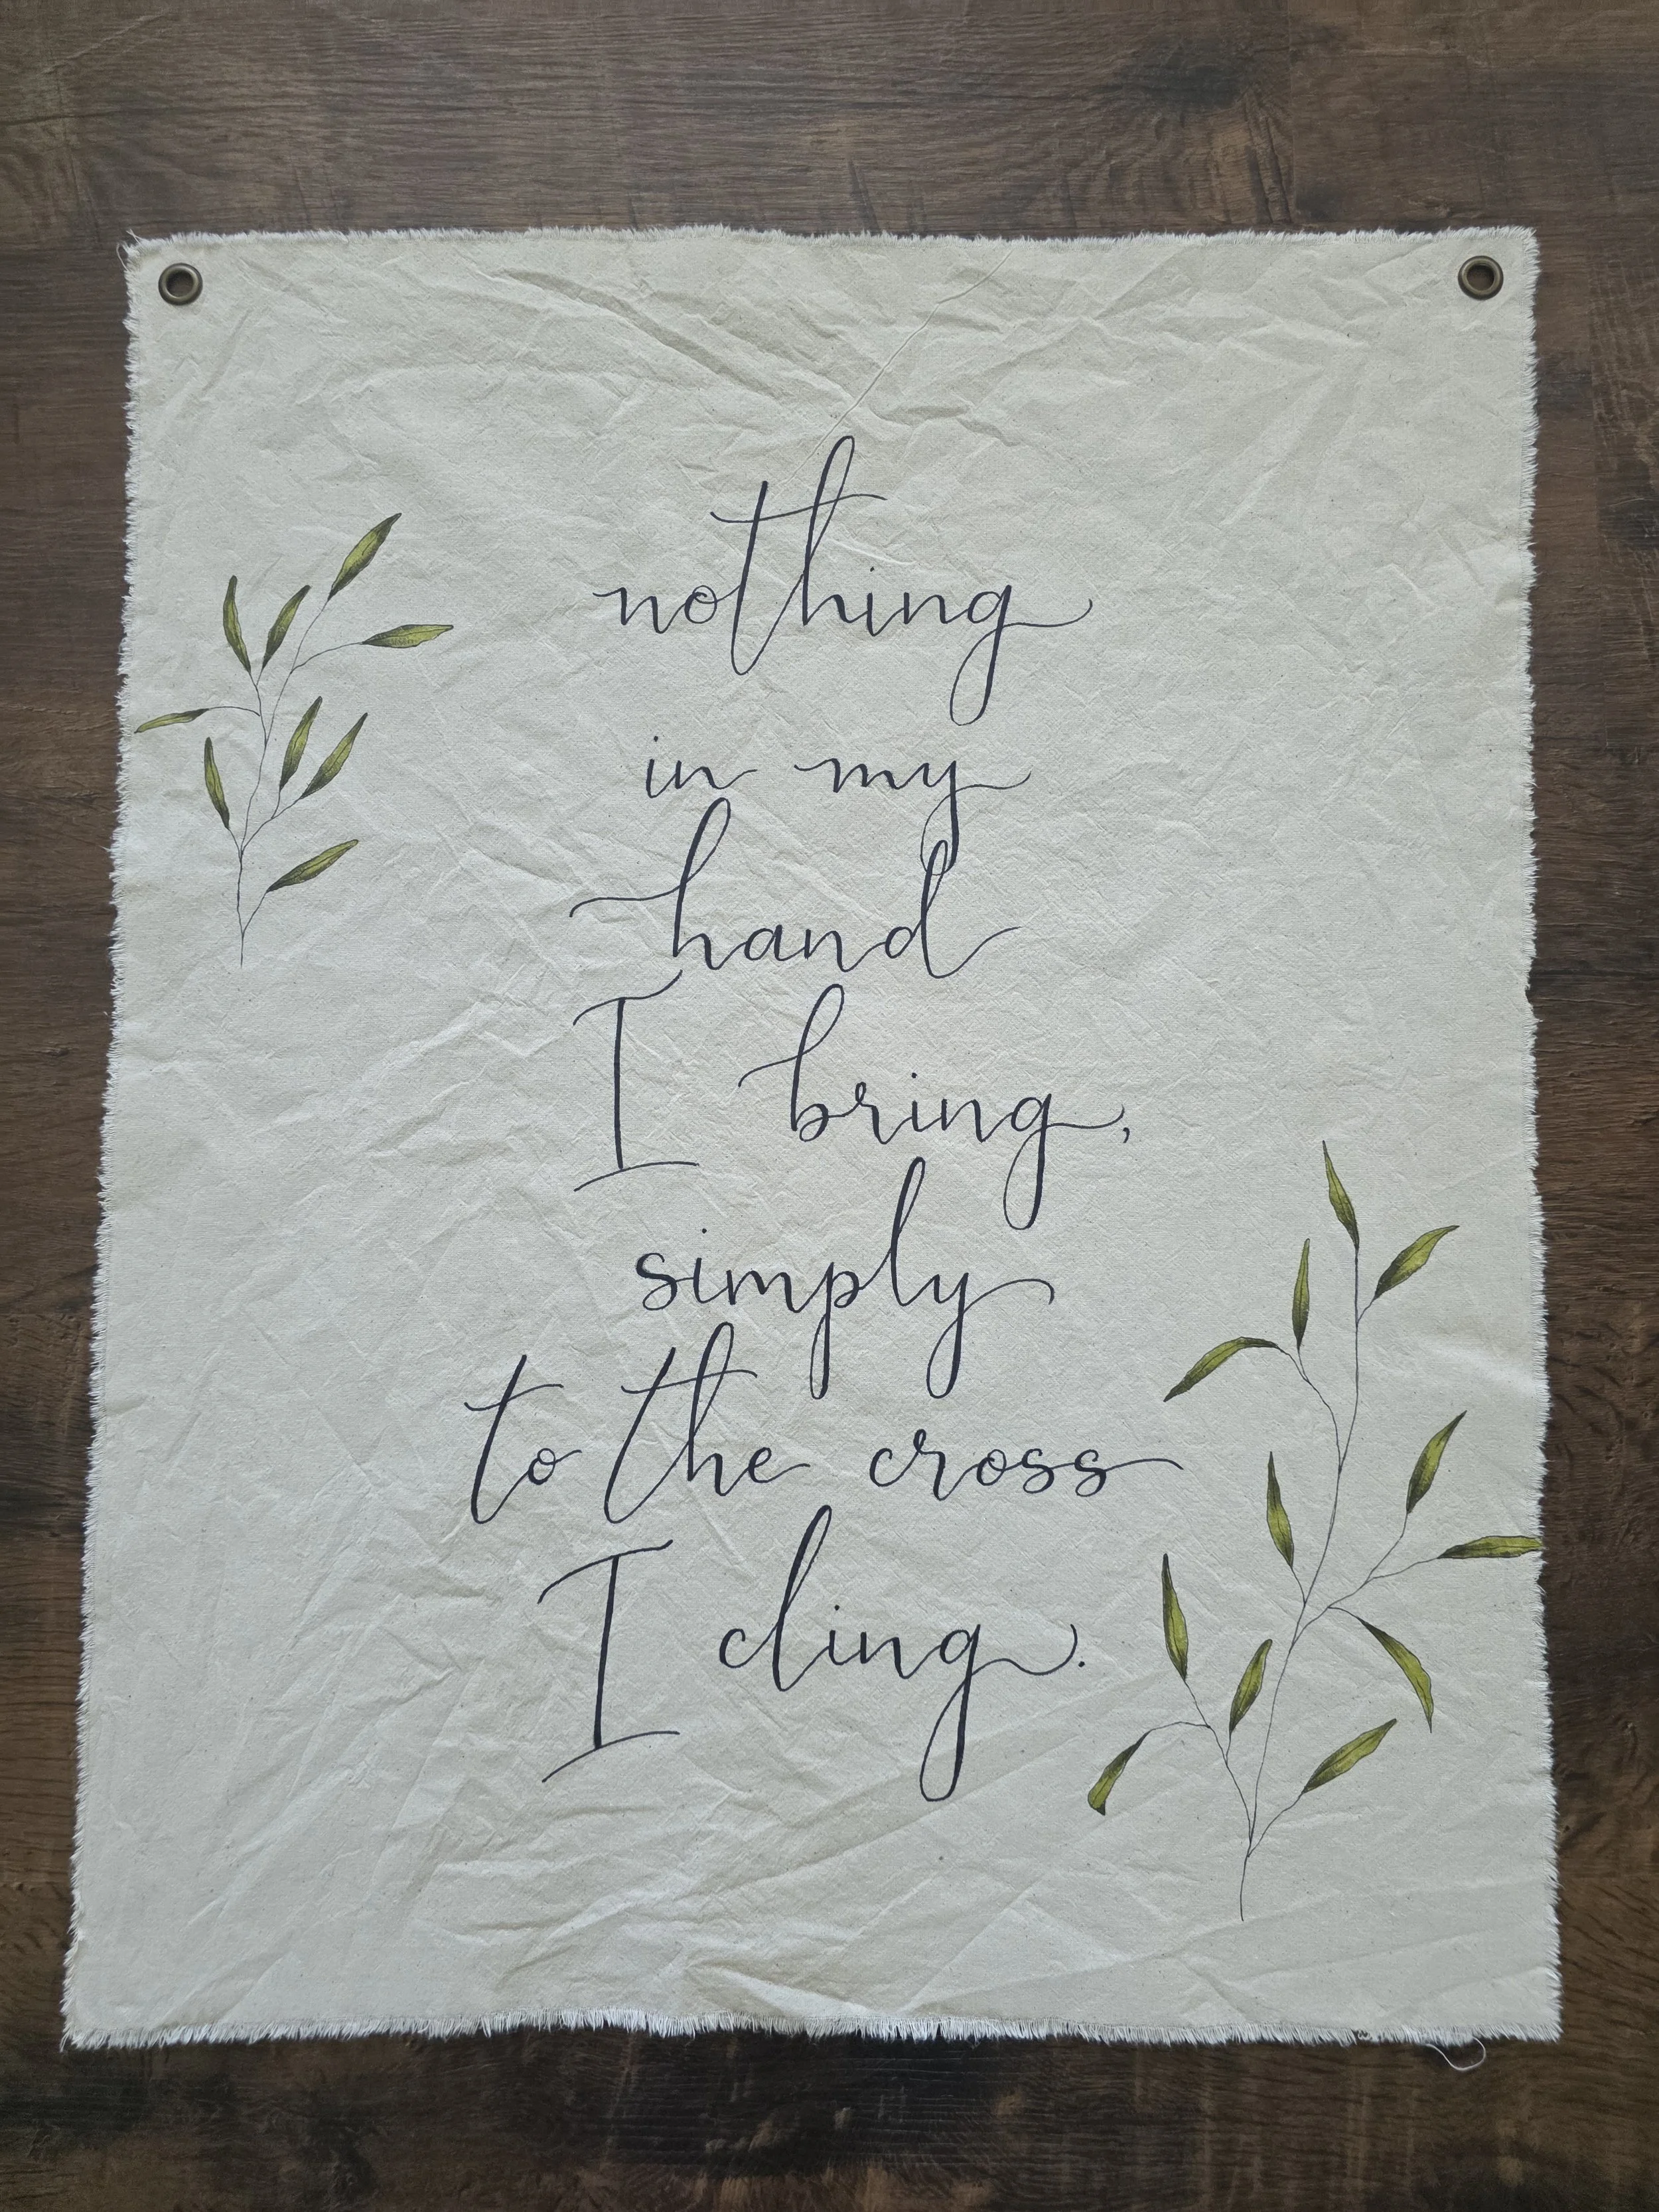 nothing
in my
hand
I bring,
simply
to the cross
I cling.